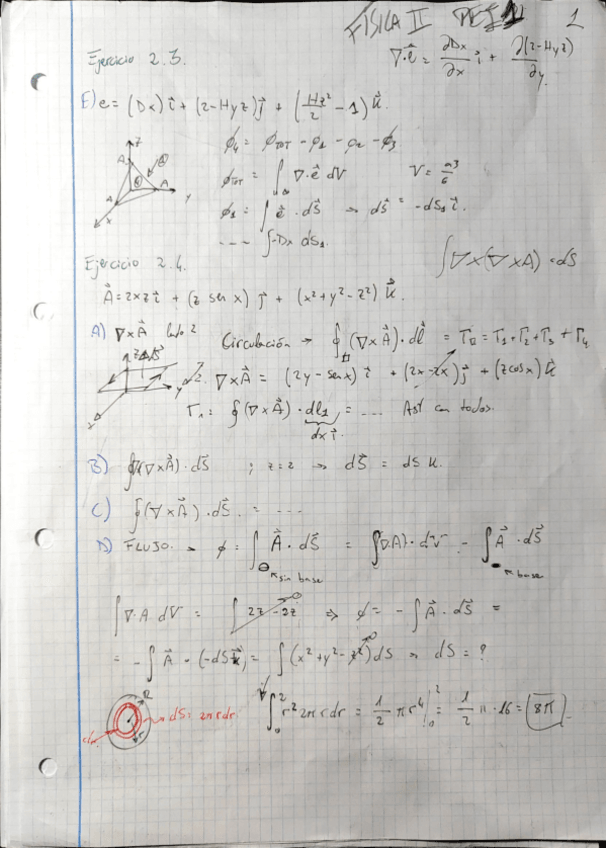 FÍSICA II PEI 1
Ejercicio 2.3.
∇·e⃗ = ∂Dx/∂x i⃗ + ∂(2-Hyz)/∂y
E) e = (Dx) i⃗ + (2-Hyz) j⃗ + (Hz²/2 - 1) k⃗.
z A A A x y
ϕ₄ = ϕTOT - ϕ₁ - ϕ₂ - ϕ₃
ϕTOT = ∫ ∇·e⃗ dV V = a³/6
ϕ₁ = ∫ e⃗ · dS⃗ → dS⃗ = -dS₁ i⃗.
---- ∫-Dx dS₁.
Ejercicio 2.4. ∫∇×(∇×A) · dS
A⃗ = 2xz i⃗ + (z sen x) j⃗ + (x²+y²-z²) k⃗.
A) ∇×A⃗ lado 2 Circulación → ∮ (∇×A⃗)·dl⃗ = T = T₁+T₂+T₃+T₄
x y z
∇×A⃗ = (2y - sen x) i⃗ + (2x-2x) j⃗ + (z cos x) k⃗
T₁ = ∮ (∇×A⃗) · dl₁ = .... Así con todos.
dx i⃗.
B) ∮(∇×A⃗)·dS⃗ ; z=2 → dS⃗ = dS k.
C) ∮(∇×A⃗)·dS⃗ = ---
D) FLUJO → ϕ = ∫ A⃗ · dS⃗ = ∫(∇·A)·dV - ∫ A⃗ · dS⃗
sin base base
∫∇·A dV = ∫ 2z - 2z 0 ⇒ ϕ = - ∫ A⃗ · dS⃗ =
= - ∫ A⃗ · (-dS k⃗) = ∫ (x²+y²-z²) dS → dS = ?
R r dr dS = 2πr dr
∫₀² r² 2πr dr = 1/2 πr⁴ |₀² = 1/2 π · 16 = 8π